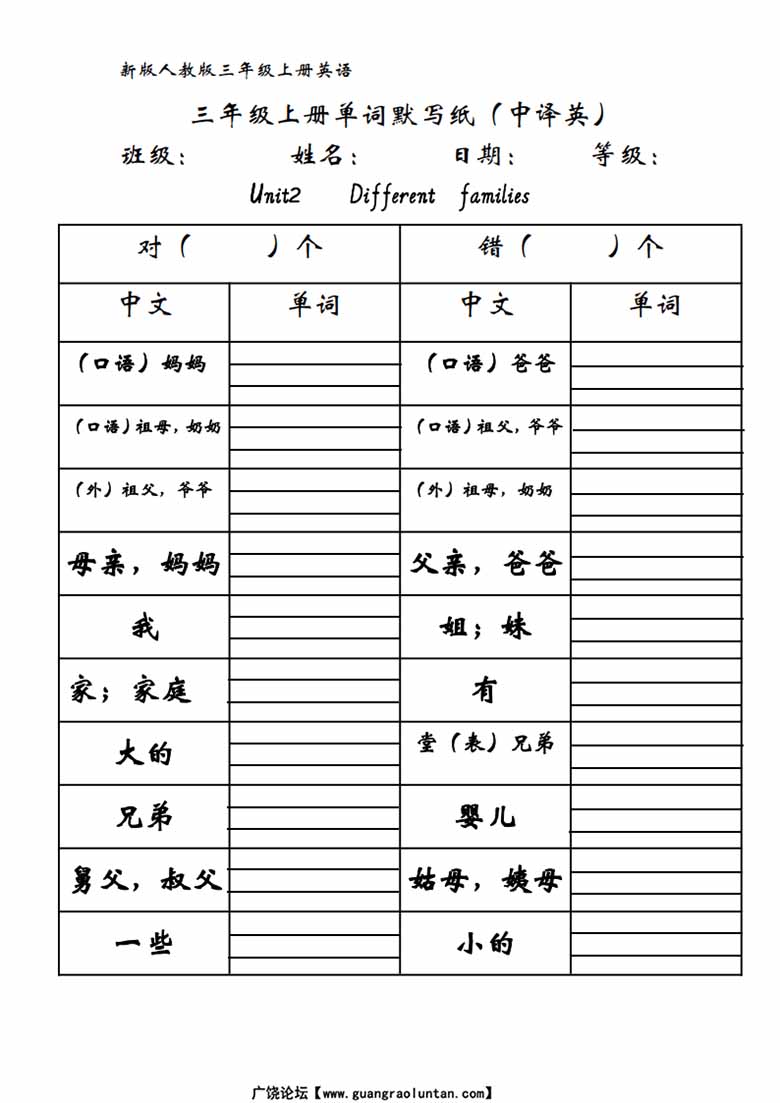 新版人教版三年级上册英语
三年级上册单词默写纸（中译英）
班级： 姓名： 日期： 等级：
Unit2 Different families
对（ ）个 错（ ）个
中文 单词 中文 单词
（口语）妈妈 （口语）爸爸
（口语）祖母，奶奶 （口语）祖父，爷爷
（外）祖父，爷爷 （外）祖母，奶奶
母亲，妈妈 父亲，爸爸
我 姐；妹
家；家庭 有
大的 堂（表）兄弟
兄弟 婴儿
舅父，叔父 姑母，姨母
一些 小的
广饶论坛【www.guangraoluntan.com】